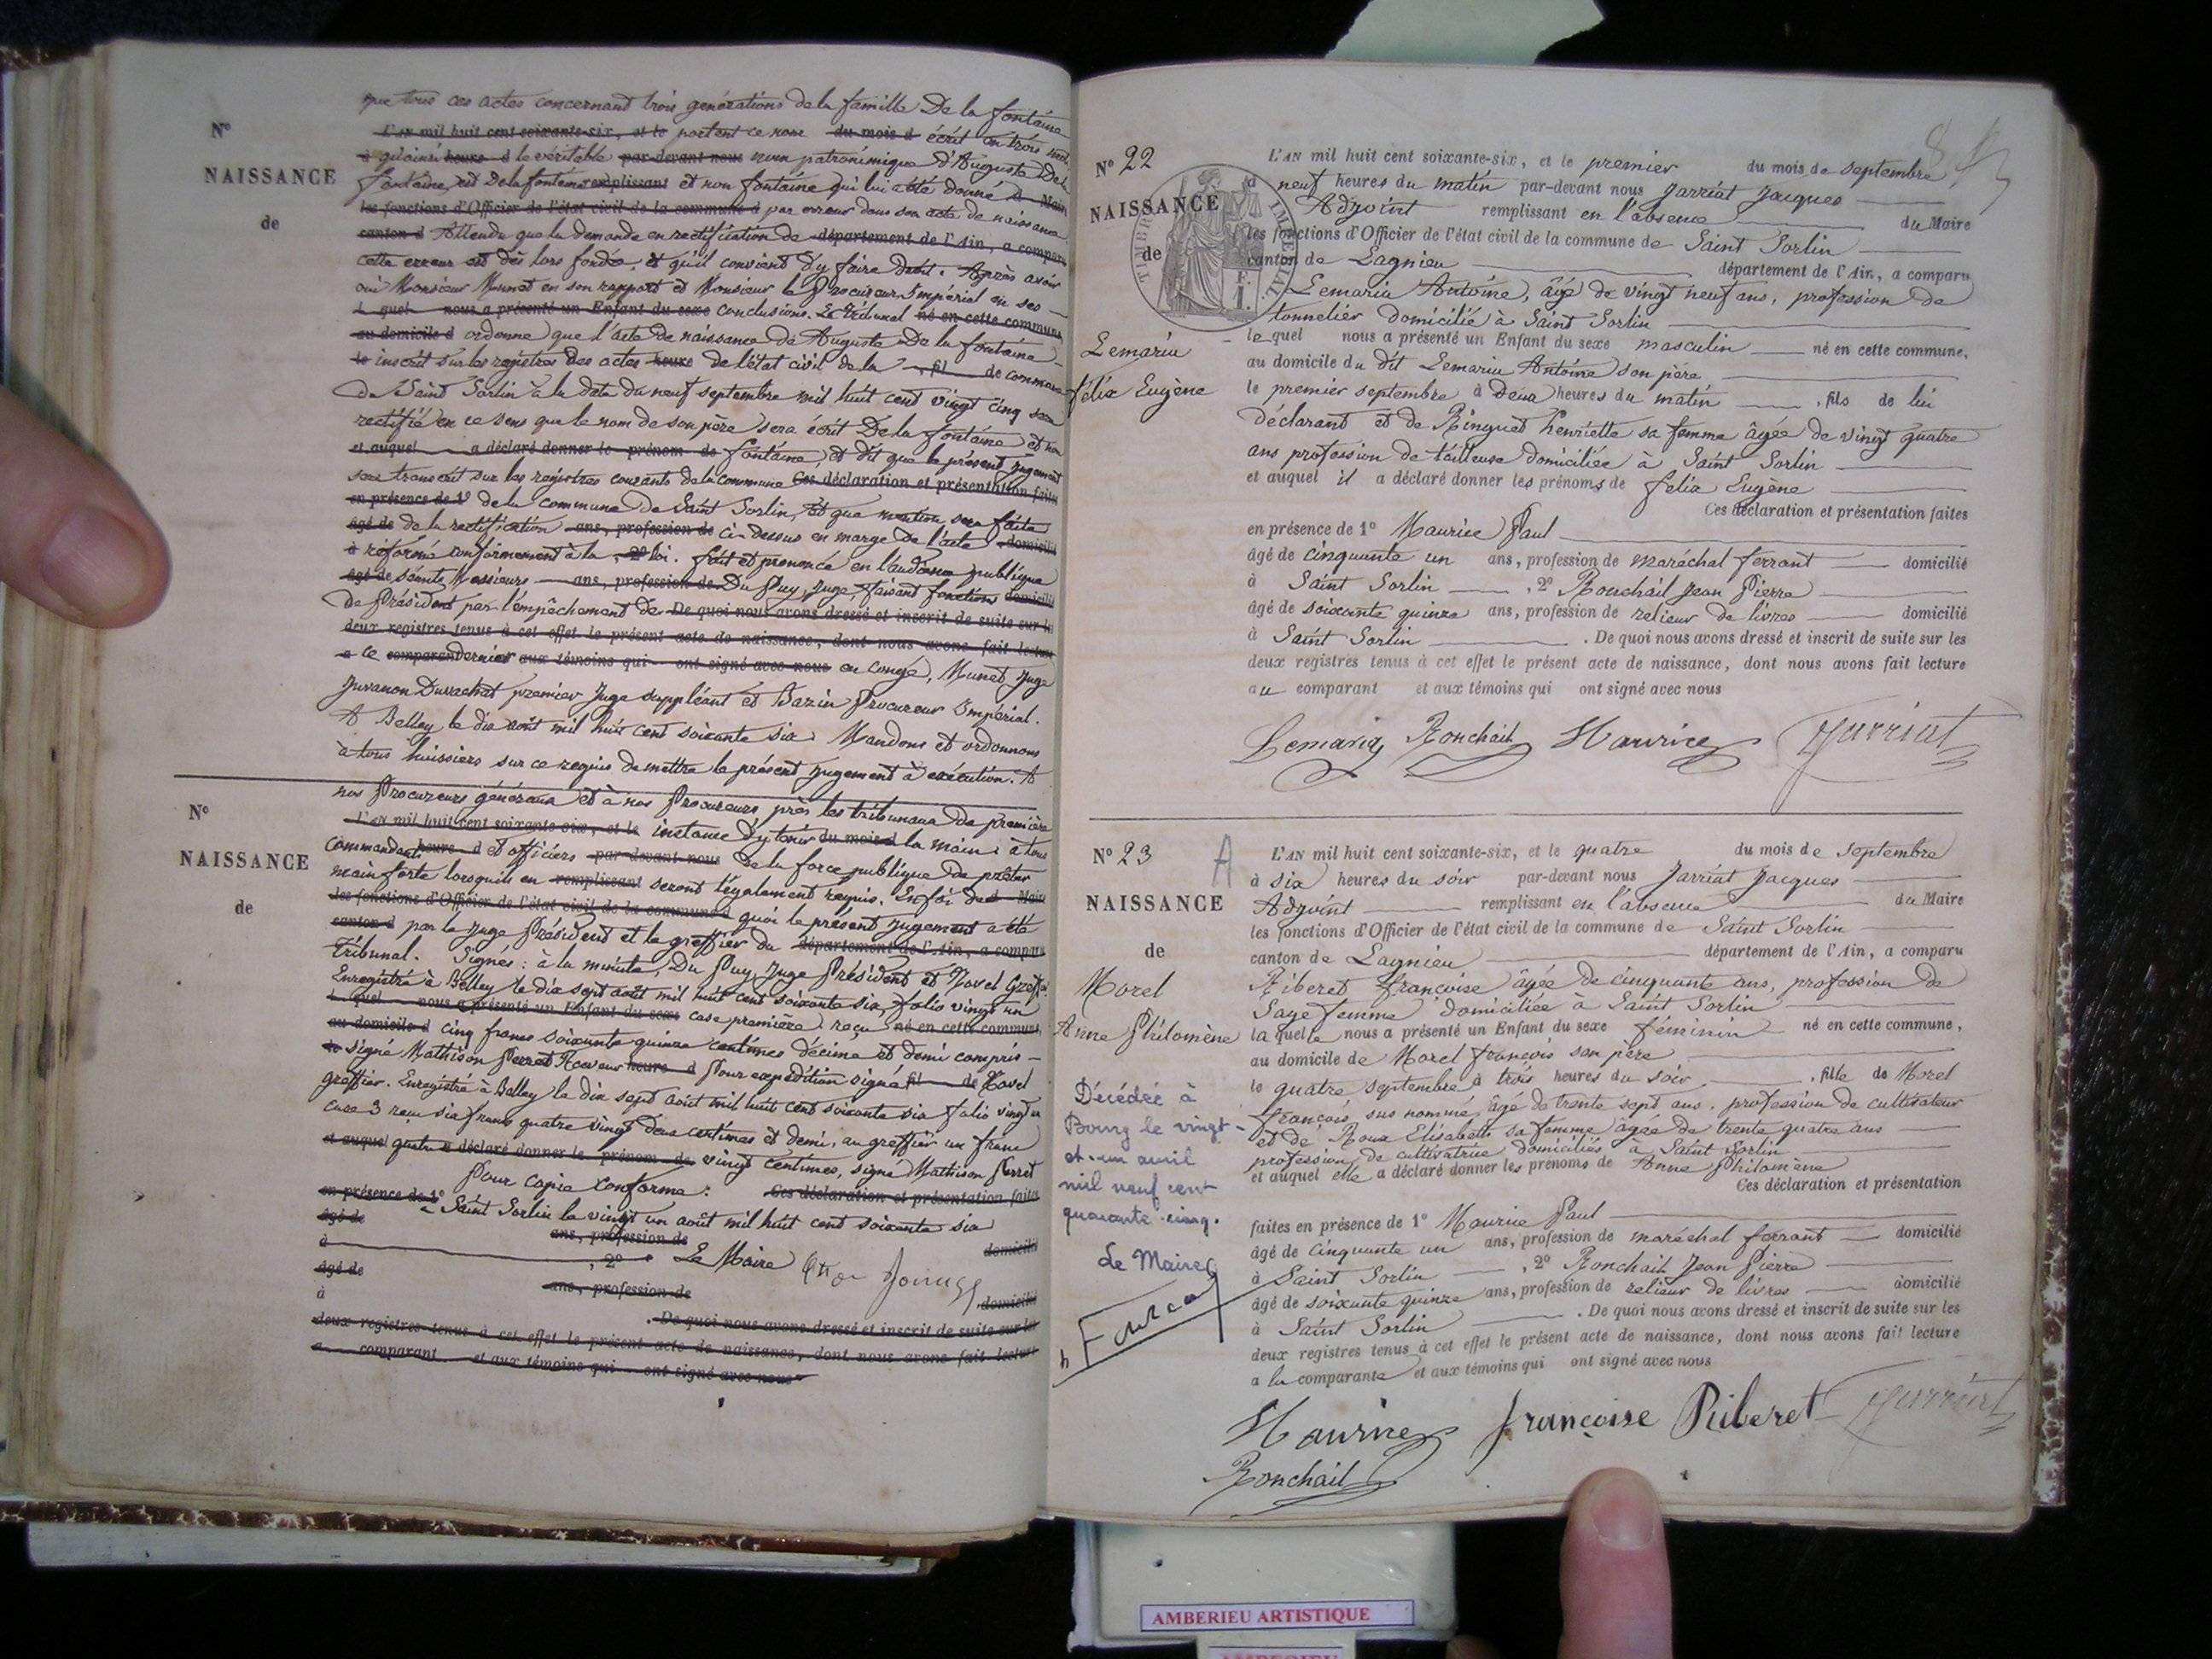 que tous ces actes concernant trois générations de la famille De la fontaine
L'AN mil huit cent soixante-six, et le portent ce nom du mois d écrit en trois mots
à qu'ainsi heure d le véritable par-devant nous nom patronimique d'Auguste De la
fontaine, est De la fontaine remplissant et non fontaine qui lui a été donné d Maire
les fonctions d'Officier de l'état civil de la commune d par erreur dans son acte de naissance.
canton d Attendu que la demande en rectification de département de l'Ain, a comparu
cette erreur est dès lors fondée, et qu'il convient d'y faire droit. Après avoir
oui Monsieur Munet en son rapport et Monsieur le Procureur Impérial en ses
l quel nous a présenté un Enfant du sexe conclusions. Le tribunal né en cette commune,
au domicile d ordonne que l'acte de naissance de Auguste De la fontaine
le inscrit sur les registres des actes heure de l'état civil de la , fil de commune
de Saint Sorlin à la date du neuf septembre mil huit cent vingt cinq sera
rectifié en ce sens que le nom de son père sera écrit De la fontaine et non
et auquel a déclaré donner le prénom de fontaine, et dit que le présent jugement
sera transcrit sur les registres courants de la commune Ces déclaration et présentation faites
en présence de 1° de la commune de Saint Sorlin, et que mention sera faite
âgé de de la rectification ans, profession de ci-dessus en marge de l'acte domicilié
à réformé conformément à la , 2° loi. fait et prononcé en l'audience publique
âgé de séante Messieurs ans, profession de Du Puy, Juge, faisant fonctions domicilié
de Président par l'empêchement de De quoi nous avons dressé et inscrit de suite sur les
deux registres tenus à cet effet le présent acte de naissance, dont nous avons fait lecture
a ce comparant dernier aux témoins qui ont signé avec nous en congé, Munet Juge
Juvanon Duvachat premier Juge suppléant et Bazin Procureur Impérial.
A Belley le dix août mil huit cent soixante six. Mandons et ordonnons
à tous huissiers sur ce requis de mettre le présent jugement à exécution. A
N°
NAISSANCE
de
nos Procureurs généraux et à nos Procureurs près les tribunaux de première
L'AN mil huit cent soixante-six, et le instance d'y tenir du mois d la main; à tous
commandants heure d et officiers par-devant nous de la force publique de prêter
main forte lorsqu'ils en remplissant seront légalement requis. En foi de d Maire
les fonctions d'Officier de l'état civil de la commune d quoi le présent jugement a été
canton d par le Juge Président et le greffier du département de l'Ain, a comparu
tribunal. Signés: à la minute, Du Puy, Juge Président et Navel Greffier
Enregistré à Belley le dix sept août mil huit cent soixante six, folio vingt un
l quel nous a présenté un Enfant du sexe case première. reçu né en cette commune,
au domicile d cinq francs soixante quinze centimes décime et demi compris
le signé Mathison Perret Receveur heure d Pour expédition signé fil de Navel
greffier. Enregistré à Belley le dix sept août mil huit cent soixante six folio vingt un
case 3 reçu six francs quatre vingt deux centimes et demi, au greffier un franc
et auquel quatre a déclaré donner le prénom de vingt centimes, signé Mathison Perret
Pour copie conforme: Ces déclaration et présentation faites
en présence de 1° à Saint Sorlin le vingt un août mil huit cent soixante six
âgé de ans, profession de domicilié
à , 2° Le Maire
âgé de ans, profession de domicilié
à . De quoi nous avons dressé et inscrit de suite sur les
deux registres tenus à cet effet le présent acte de naissance, dont nous avons fait lecture
a comparant et aux témoins qui ont signé avec nous
N°
NAISSANCE
de
N° 22
NAISSANCE
de
Lemaria
félix Eugène
TIMBRE IMPÉRIAL
L'AN mil huit cent soixante-six, et le premier du mois de septembre
à neuf heures du matin par-devant nous Jarriat Jacques
Adjoint remplissant en l'absence du Maire
les fonctions d'Officier de l'état civil de la commune de Saint Sorlin
canton de Lagnieu département de l'Ain, a comparu
Lemaria Antoine, âgé de vingt neuf ans, profession de
tonnelier domicilié à Saint Sorlin
le quel nous a présenté un Enfant du sexe masculin né en cette commune,
au domicile du dit Lemaria Antoine son père
le premier septembre à deux heures du matin , fils de lui
déclarant et de Ringuet henriette sa femme âgée de vingt quatre
ans profession de tailleuse domiciliée à Saint Sorlin
et auquel il a déclaré donner les prénoms de felix Eugène
Ces déclaration et présentation faites
en présence de 1° Maurice Paul
âgé de cinquante un ans, profession de maréchal ferrant domicilié
à Saint Sorlin , 2° Ronchail Jean Pierre
âgé de soixante quinze ans, profession de relieur de livres domicilié
à Saint Sorlin . De quoi nous avons dressé et inscrit de suite sur les
deux registres tenus à cet effet le présent acte de naissance, dont nous avons fait lecture
au comparant et aux témoins qui ont signé avec nous
Lemaria Ronchail Maurice Jarriat
N° 23 A
NAISSANCE
de
Morel
Anne Philomène
Décédée à
Bourg le vingt-
et-un avril
mil neuf cent
quarante-cinq.
Le Maire
L'AN mil huit cent soixante-six, et le quatre du mois de septembre
à six heures du soir par-devant nous Jarriat Jacques
Adjoint remplissant en l'absence du Maire
les fonctions d'Officier de l'état civil de la commune de Saint Sorlin
canton de Lagnieu département de l'Ain, a comparu
Riberet françoise âgée de cinquante ans, profession de
Sage femme domiciliée à Saint Sorlin
la quelle nous a présenté un Enfant du sexe féminin né en cette commune,
au domicile de Morel françois son père
le quatre septembre à trois heures du soir , fille de Morel
françois, sus nommé, âgé de trente sept ans, profession de cultivateur
et de Roux Elisabeth sa femme âgée de trente quatre ans
profession de cultivatrice domiciliés à Saint Sorlin
et auquel elle a déclaré donner les prénoms de Anne Philomène
Ces déclaration et présentation
faites en présence de 1° Maurice Paul
âgé de cinquante un ans, profession de maréchal ferrant domicilié
à Saint Sorlin , 2° Ronchail Jean Pierre
âgé de soixante quinze ans, profession de relieur de livres domicilié
à Saint Sorlin . De quoi nous avons dressé et inscrit de suite sur les
deux registres tenus à cet effet le présent acte de naissance, dont nous avons fait lecture
a la comparante et aux témoins qui ont signé avec nous
Maurice françoise Riberet Jarriat
Ronchail
AMBERIEU ARTISTIQUE
AMBERIEU